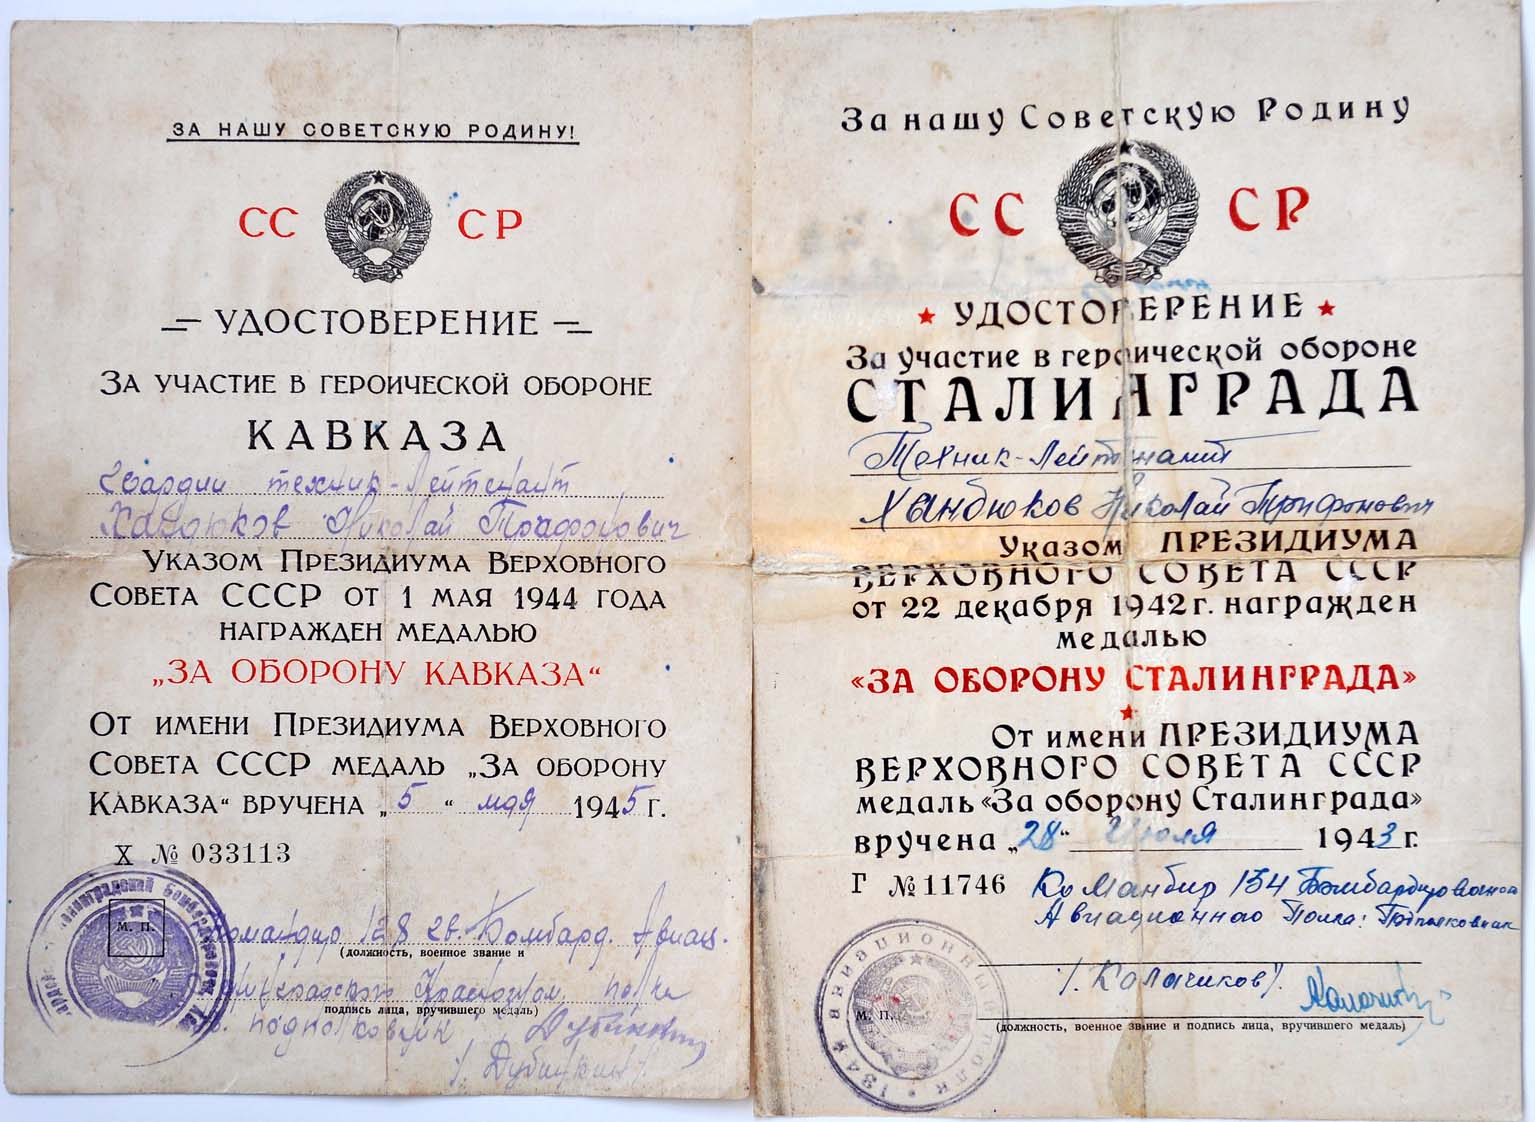 ЗА НАШУ СОВЕТСКУЮ РОДИНУ!
СС СР
УДОСТОВЕРЕНИЕ
ЗА УЧАСТИЕ В ГЕРОИЧЕСКОЙ ОБОРОНЕ
КАВКАЗА
Гвардии техник-лейтенант
Николай
УКАЗОМ ПРЕЗИДИУМА ВЕРХОВНОГО
СОВЕТА СССР ОТ 1 МАЯ 1944 ГОДА
НАГРАЖДЕН МЕДАЛЬЮ
„ЗА ОБОРОНУ КАВКАЗА“
ОТ ИМЕНИ ПРЕЗИДИУМА ВЕРХОВНОГО
СОВЕТА СССР МЕДАЛЬ „ЗА ОБОРОНУ
КАВКАЗА“ ВРУЧЕНА „5“ мая 1945 г.
Х № 033113
М. П.
Командир 128 гв. Бомбард. Авиац.
(должность, военное звание и
Краснознам. полка
подпись лица, вручившего медаль)
гв. подполковник
За нашу Советскую Родину
СС СР
УДОСТОВЕРЕНИЕ
За участие в героической обороне
СТАЛИНГРАДА
Техник-Лейтенант
Ханбюков Николай Трифонович
Указом ПРЕЗИДИУМА
ВЕРХОВНОГО СОВЕТА СССР
от 22 декабря 1942 г. награжден
медалью
«ЗА ОБОРОНУ СТАЛИНГРАДА»
От имени ПРЕЗИДИУМА
ВЕРХОВНОГО СОВЕТА СССР
медаль «За оборону Сталинграда»
вручена „28“ Июля 1943 г.
Г № 11746
Командир 134 Бомбардировочного
Авиационного Полка: Подполковник
/. Колачиков/.
М. П.
(должность, военное звание и подпись лица, вручившего медаль)
134й АВИАЦИОННЫЙ ПОЛК